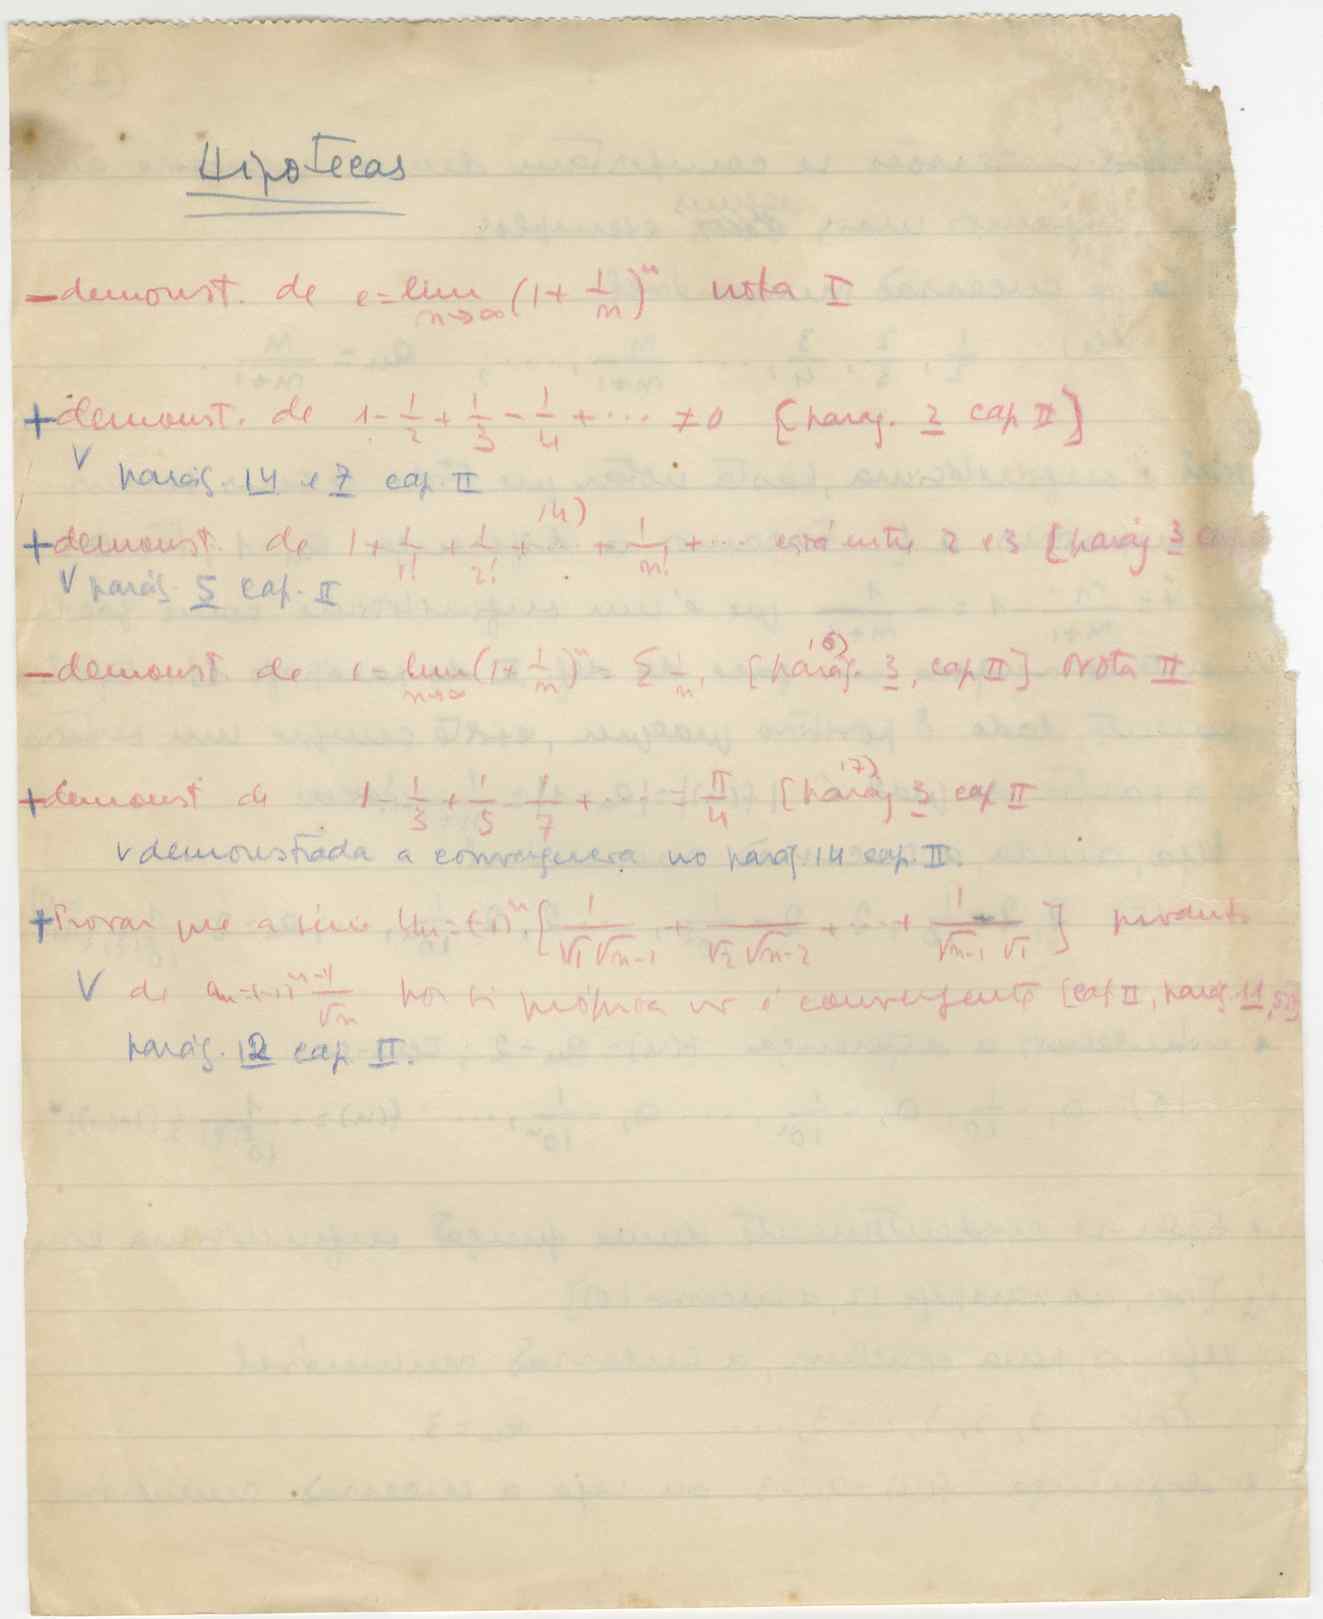 Hipotecas
- demonst. de e = lim n→∞ (1 + 1/n)^n nota I
+ demonst. de 1 - 1/2 + 1/3 - 1/4 + ... ≠ 0 [parág. 2 cap II]
V parág. 14 e 7 cap. II
+ demonst. de 1 + 1/1! + 1/2! + ... + 1/n! + ... está entre 2 e 3 [parág 3 14)
V parág. 5 cap. II
- demonst. de e = lim n→∞ (1 + 1/n)^n = Σ 1/n! [parág. 3, cap II] Nota II
+ demonst de 1 - 1/3 + 1/5 - 1/7 + ... = π/4 [parág 3 cap II 17)
V demonstrada a convergencia no parág 14 cap. II.
+ Provar que a série Un = (-1)^n [1/√1√n-1 + 1/√2√n-2 + ... + 1/√n-1 √1] produto
V de an = (-1)^n-1 1/√n por si própria não é convergente [cap II, parág. 11,
parág. 12 cap II.